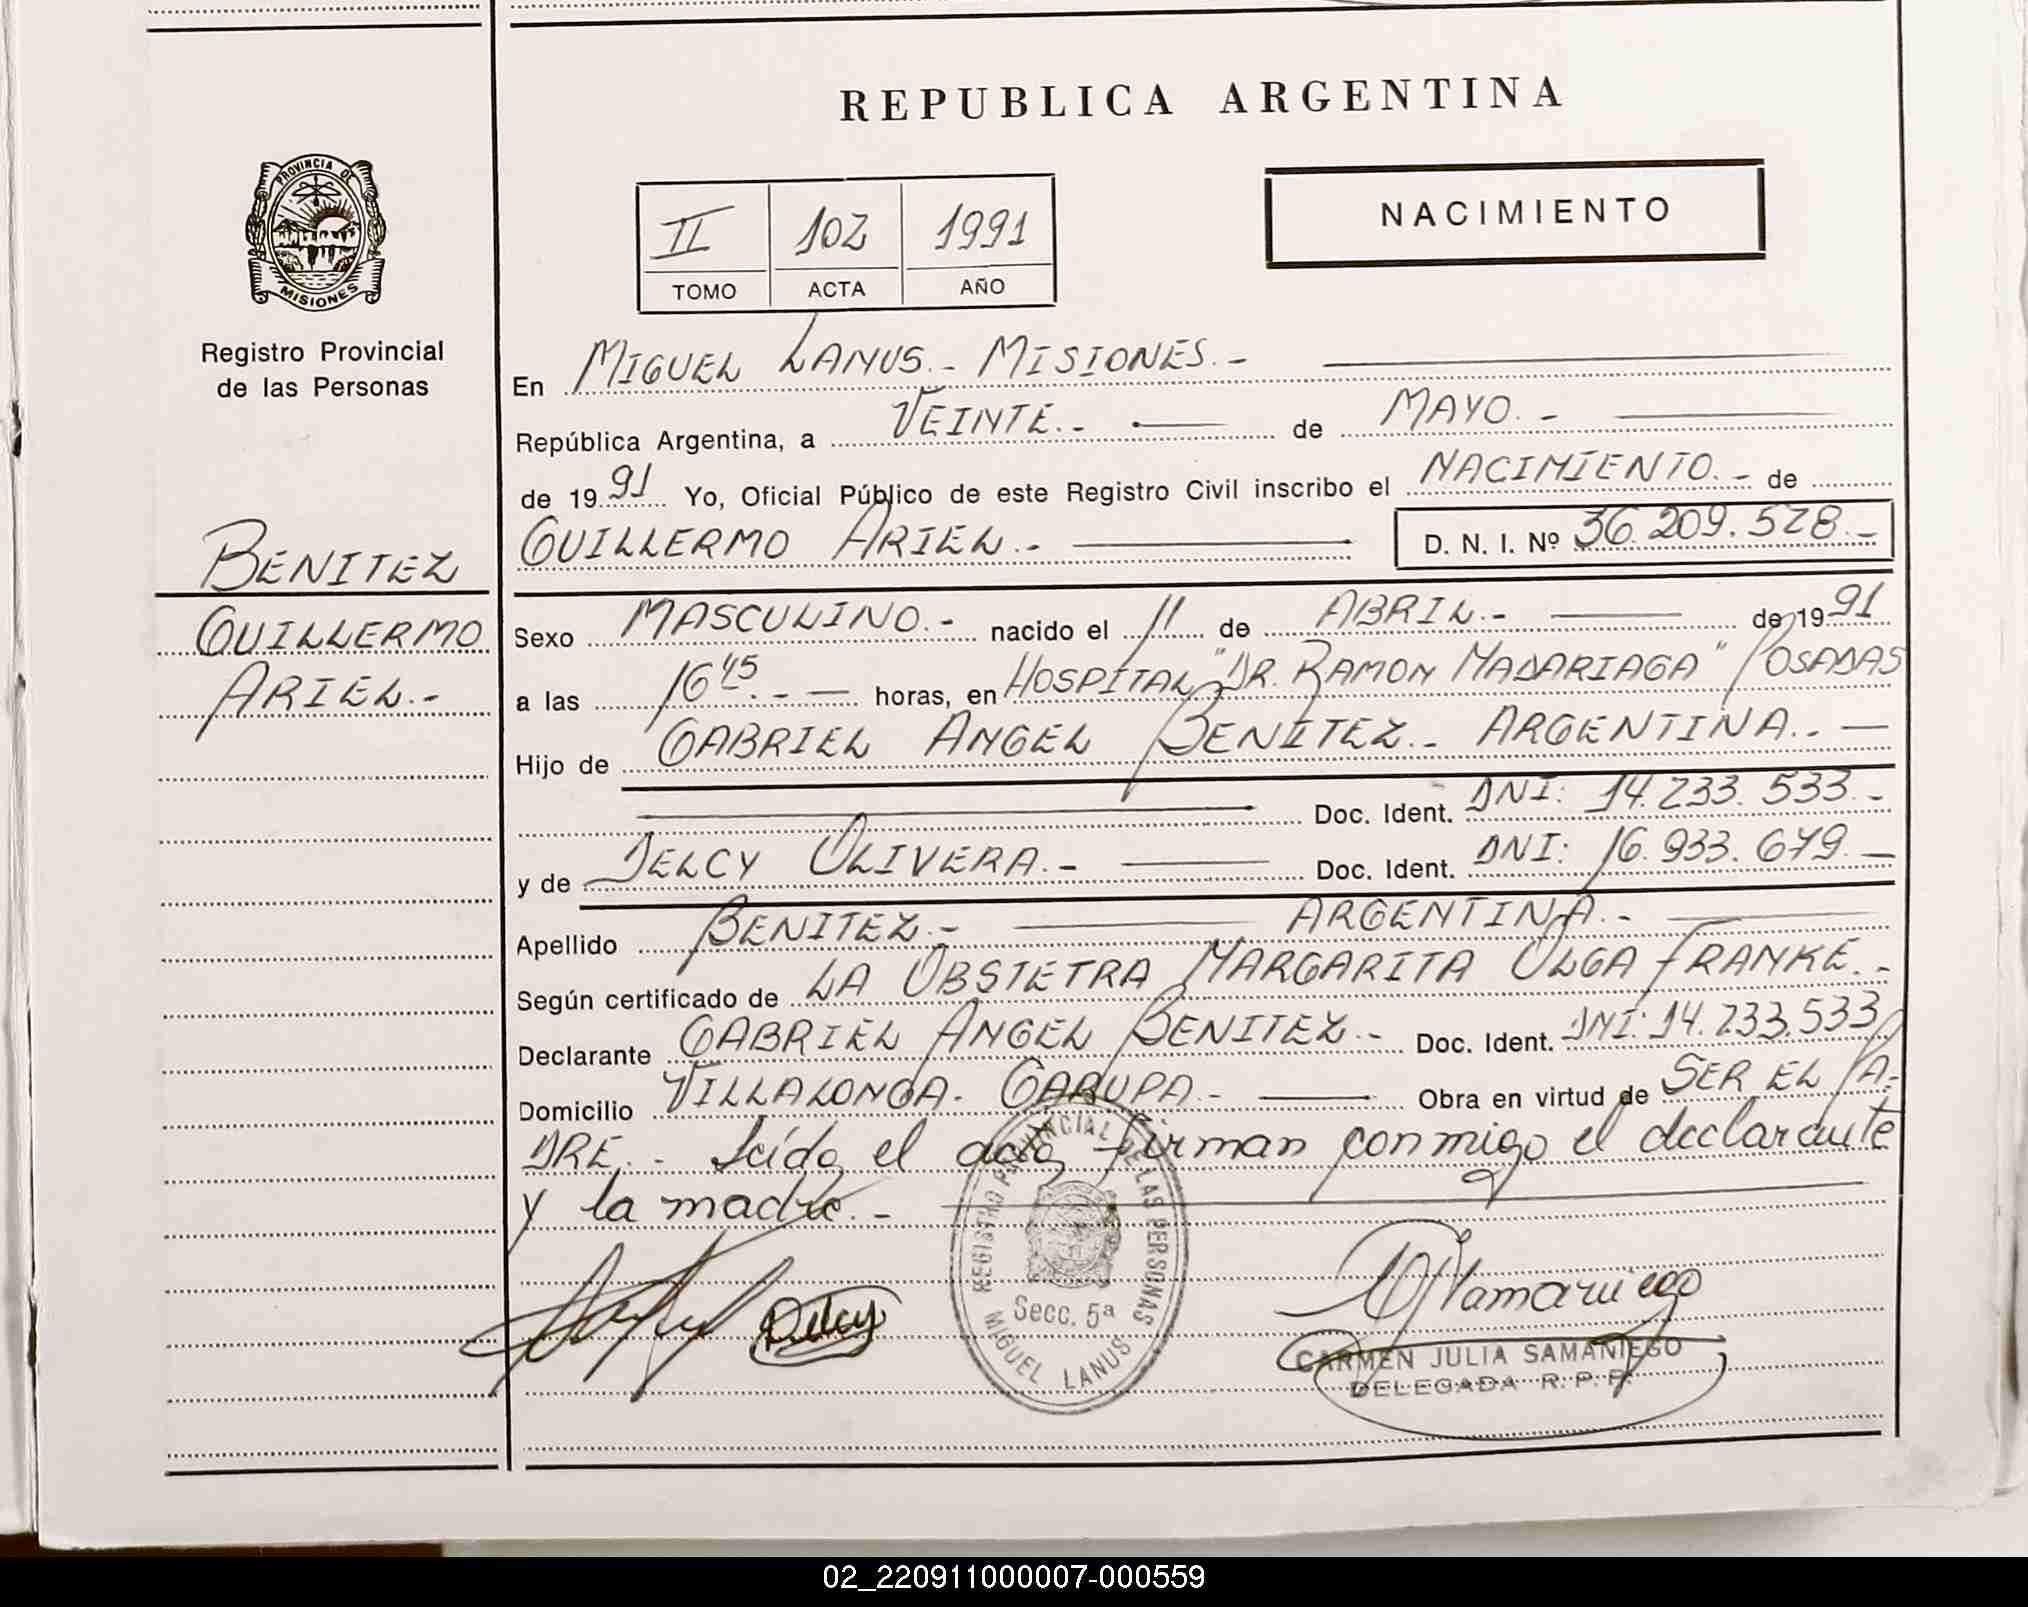 REPUBLICA ARGENTINA
PROVINCIA DE MISIONES
Registro Provincial
de las Personas
II 102 1991
TOMO ACTA AÑO
NACIMIENTO
En MIGUEL LANUS.- MISIONES.-
República Argentina, a VEINTE.- de MAYO.-
de 1991 Yo, Oficial Público de este Registro Civil inscribo el NACIMIENTO.- de
GUILLERMO ARIEL.- D. N. I. Nº 36.209.528.-
BENITEZ
GUILLERMO
ARIEL.-
Sexo MASCULINO.- nacido el 11 de ABRIL.- de 1991
a las 16 45.- horas, en HOSPITAL "DR. RAMON MADARIAGA" POSADAS
Hijo de GABRIEL ANGEL BENITEZ.- ARGENTINA.-
Doc. Ident. DNI: 14.233.533.-
y de DELCY OLIVERA.- Doc. Ident. DNI: 16.933.679.-
Apellido BENITEZ.- ARGENTINA.-
Según certificado de LA OBSTETRA MARGARITA OLGA FRANKE.-
Declarante GABRIEL ANGEL BENITEZ.- Doc. Ident. DNI: 14.233.533
Domicilio VILLALONGA. GARUPA.- Obra en virtud de SER EL PA-
DRE.- Leída el acta, firman conmigo el declarante
y la madre.-
Delcy
REGISTRO PROVINCIAL DE LAS PERSONAS
Secc. 5ª
MIGUEL LANUS
CJSamaniego
CARMEN JULIA SAMANIEGO
DELEGADA R. P. P.
02_220911000007-000559